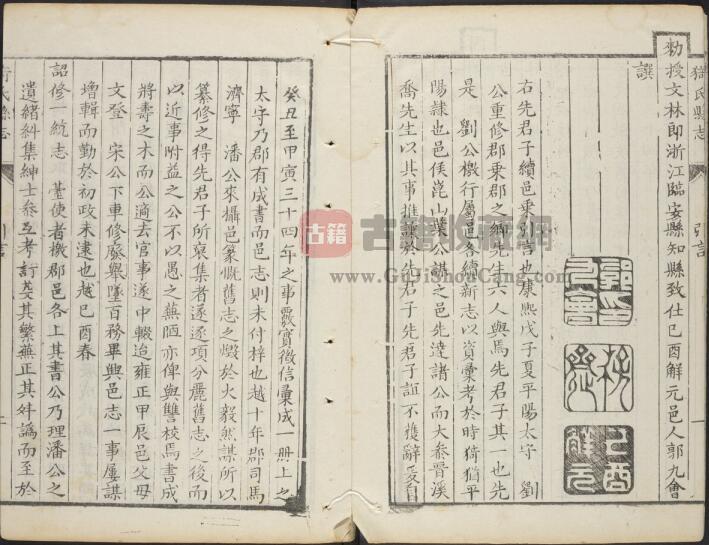 猗氏縣志
引言
勑授文林郎浙江臨安縣知縣致仕己酉解元邑人郭九會
譔
右先君子續邑乗引言也康熙戊子夏平陽太守 劉
公重修郡乗郡之鄉先生六人與焉先君子其一也先
是 劉公檄行屬邑各續新志以資彙考於時猗猶平
陽隷也邑侯崑山葉公謀之邑先達諸公而大叅晉溪
喬先生以其事推讓於先君子先君子誼不獲辭爰自
己酉
解元
癸丑至甲寅三十四年之事覈實徵信彙成一册上之
太守乃郡有成書而邑志則未付梓也越十年郡司馬
濟寧 潘公來攝邑篆慨舊志之燬於火毅然謀所以
纂修之得先君子所裒集者遂逐項分麗舊志之後而
以近事附益之公不以愚之蕪陋亦俾與讐校焉書成
將壽之木而公適去官事遂中輟迨雍正甲辰邑父母
文登 宋公下車修廢舉墜百務畢興邑志一事屢謀
增輯而勤於初政未逮也越己酉春
詔修一統志 臺使者檄郡邑各上其書公乃理潘公之
遺緒糾集紳士叅互考訂芟其繁蕪正其舛譌而至於
古籍
古籍收藏网
www.GujiShouCang.com